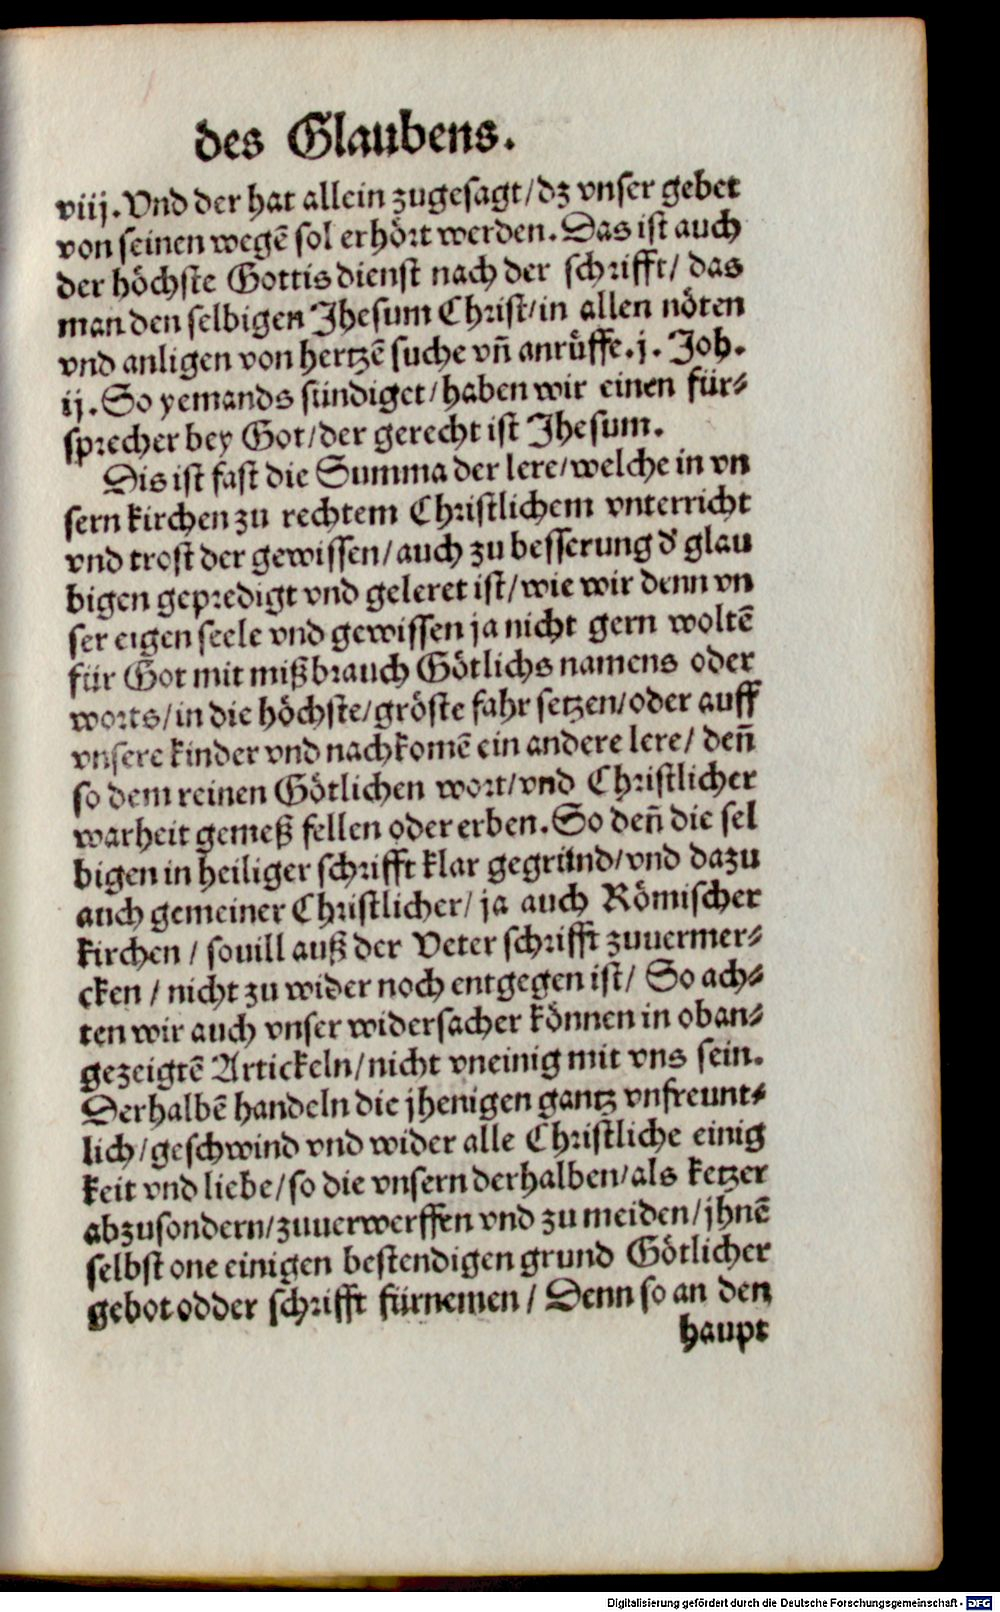 des Glaubens.
viij. Vnd der hat allein zugesagt/dz vnser gebet
von seinen wegē sol erhört werden. Das ist auch
der höchste Gottis dienst nach der schrifft/ das
man den selbigen Jhesum Christ/in allen nöten
vnd anligen von hertzē suche vñ anrüffe. j. Joh.
ij. So yemands sündiget/haben wir einen für⸗
sprecher bey Got/der gerecht ist Jhesum.
Dis ist fast die Summa der lere/welche in vn
sern kirchen zu rechtem Christlichem vnterricht
vnd trost der gewissen/auch zu besserung d' glau
bigen gepredigt vnd geleret ist/wie wir denn vn
ser eigen seele vnd gewissen ja nicht gern woltē
für Got mit mißbrauch Götlichs namens oder
worts/in die höchste/gröste fahr setzen/oder auff
vnsere kinder vnd nachkomē ein andere lere/ deñ
so dem reinen Götlichen wort/vnd Christlicher
warheit gemeß fellen oder erben. So deñ die sel
bigen in heiliger schrifft klar gegründ/vnd dazu
auch gemeiner Christlicher/ ja auch Römischer
kirchen / souill auß der Veter schrifft zuuermer⸗
cken / nicht zu wider noch entgegen ist/ So ach⸗
ten wir auch vnser widersacher können in oban⸗
gezeigtē Artickeln/nicht vneinig mit vns sein.
Derhalbē handeln die jhenigen gantz vnfreunt⸗
lich/geschwind vnd wider alle Christliche einig
keit vnd liebe/so die vnsern derhalben/als ketzer
abzusondern/zuuerwerffen vnd zu meiden/jhnē
selbst one einigen bestendigen grund Götlicher
gebot odder schrifft fürnemen / Denn so an den
haupt
Digitalisierung gefördert durch die Deutsche Forschungsgemeinschaft - DFG